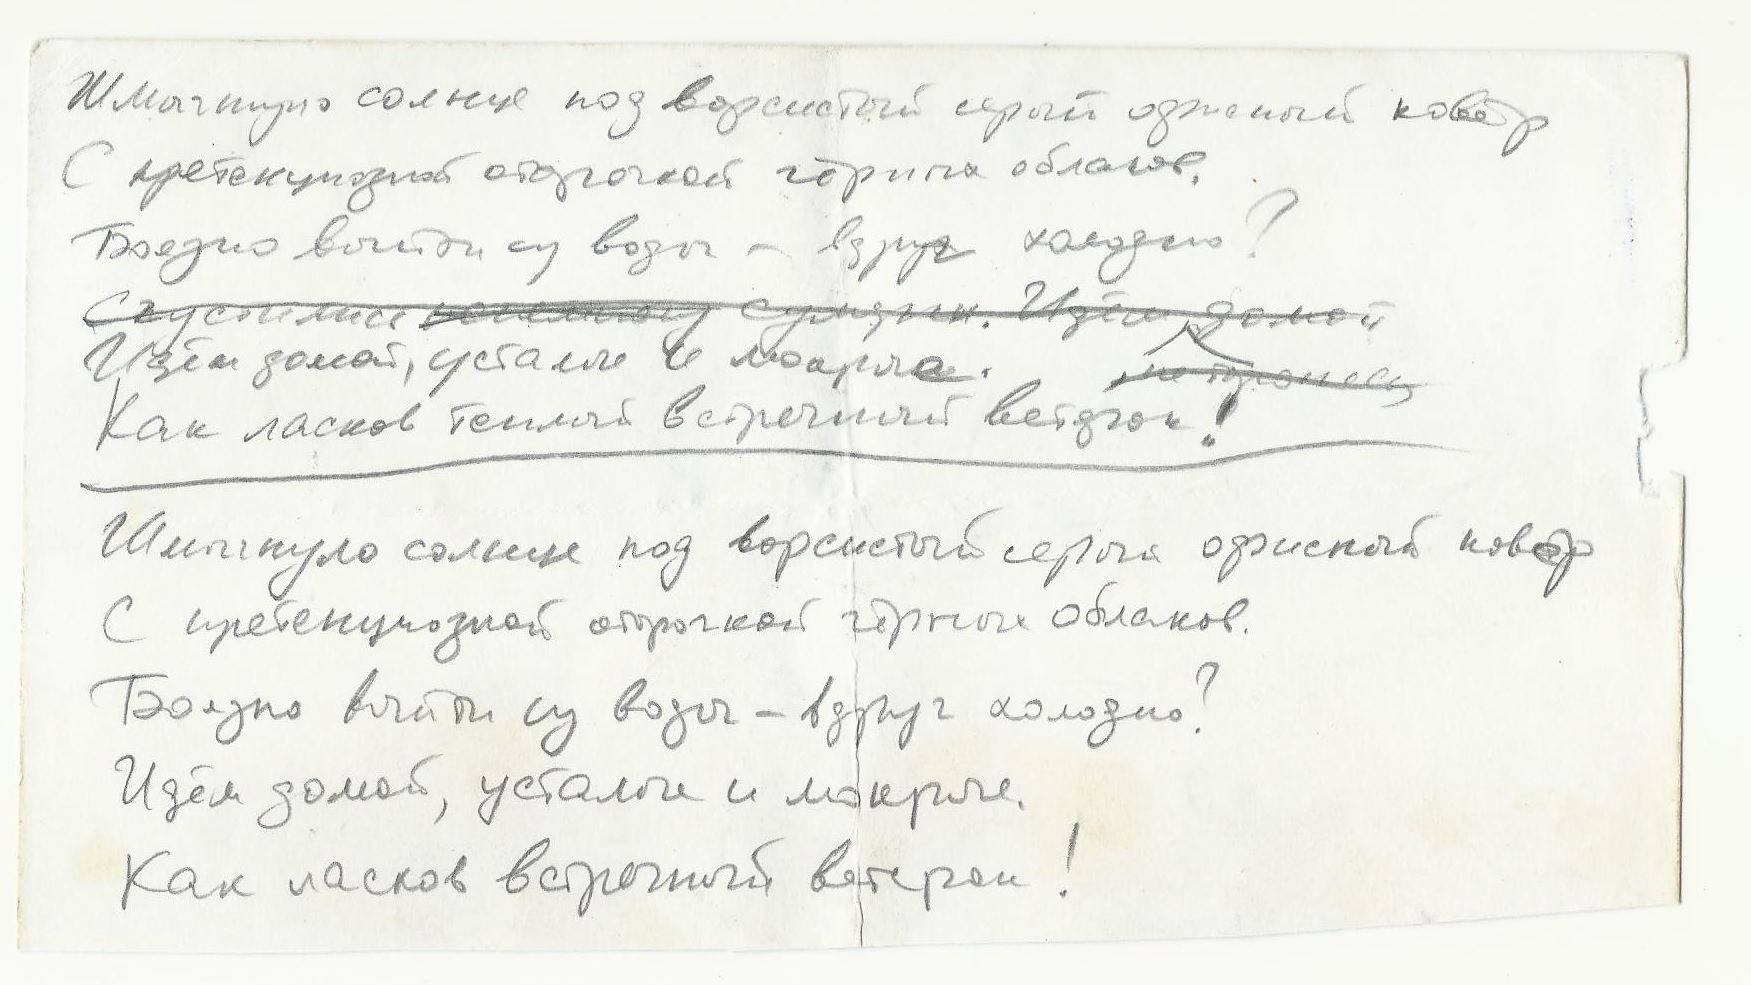 Шмыгнуло солнце под ворсистый серый офисный ковёр
С претенциозной оторочкой чёрных облаков.
Боязно выйти из воды – вдруг холодно?
Сгустились сумерки. Идём домой
Идём домой, усталые и мокрые.
Как ласков теплый встречный ветерок!
Шмыгнуло солнце под ворсистый серый офисный ковёр
С претенциозной оторочкой чёрных облаков.
Боязно выйти из воды – вдруг холодно?
Идём домой, усталые и мокрые.
Как ласков встречный ветерок!